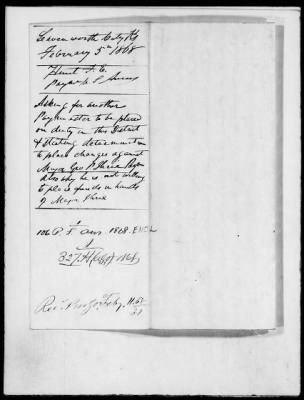 Leavenworth City Ks
February 5th 1868
Hunt F. E.
Paymr U S Army
Asking for another
Paymaster to be placed
on duty in this District
& stating determination
to place charges against
Major Geo P
also why he is not willing
to place funds in hands
of Major
106 P. 1868. Encl
1
327
Recd Feby. 11. 68